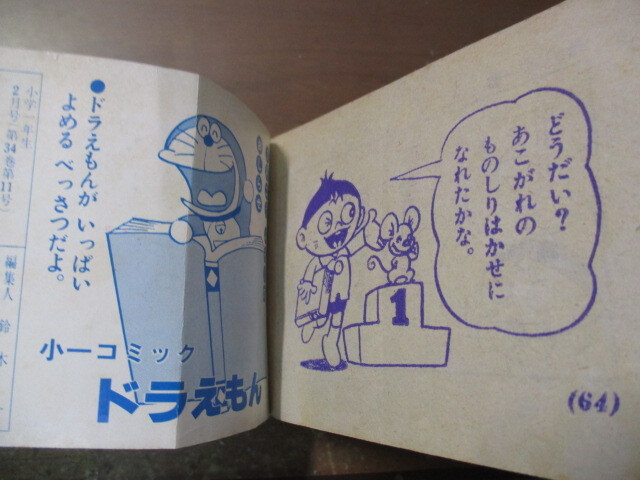 どうだい?
あこがれの
ものしりはかせに
なれたかな。
1
(64)
●ドラえもんが いっぱい
よめる べっさつだよ。
小一コミック
ドラえもん
小学一年生
2月号(第34巻第11号)
編集人 鈴木